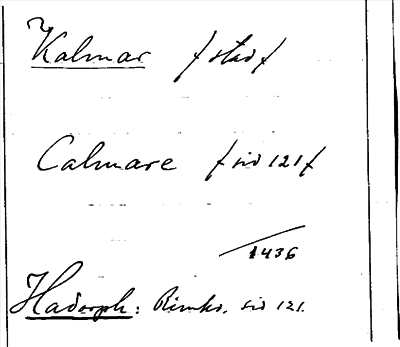 Kalmar / stad /
Calmare / sid 121 /
1436
Hadorph: Rimkr. sid 121.